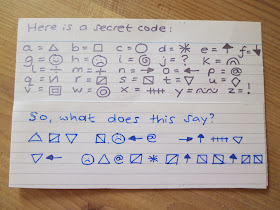 Here is a secret code:
a = △ b = □ c = ○ d = ✳ e = ↑ f = ↓
g = ☺ h = ☹ i = ◎ j = ? k =
l = m = + n = → o = ← p = @
q = r = s = t = u =
v = w = x = y = z = !
So, what does this say?